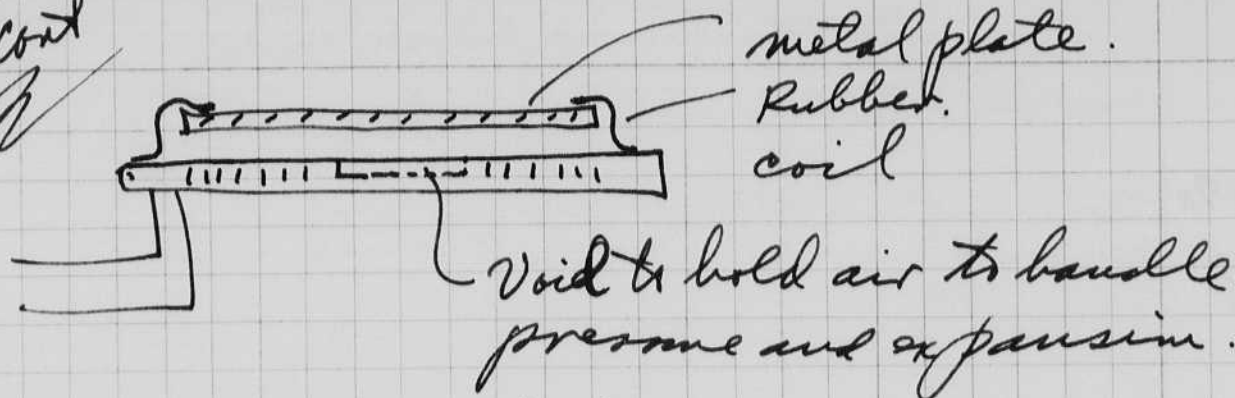 cont
metal plate.
Rubber.
coil
Void to hold air to handle
pressure and expansion.